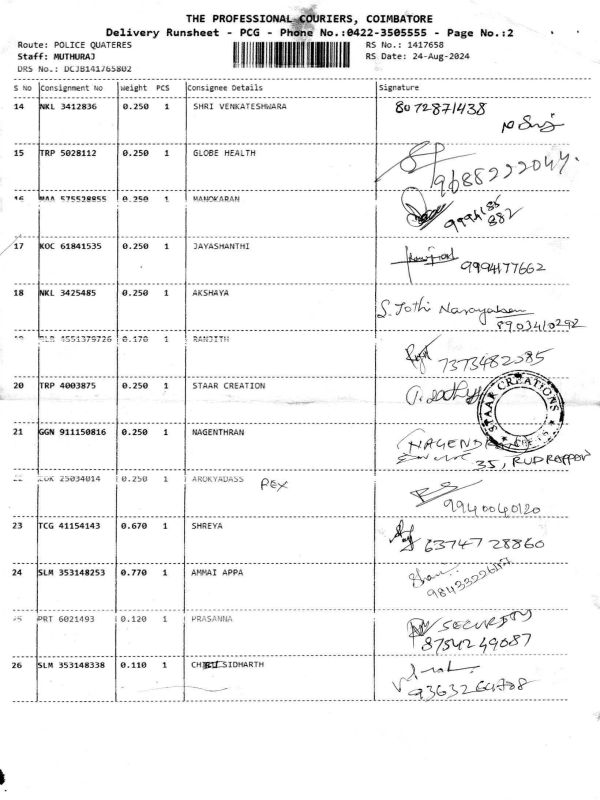 THE PROFESSIONAL COURIERS, COIMBATORE
Delivery Runsheet - PCG - Phone No.:0422-3505555 - Page No.:2
Route: POLICE QUATERES RS No.: 1417658
Staff: MUTHURAJ RS Date: 24-Aug-2024
DRS No.: DCJB141765802
S No Consignment No Weight PCS Consignee Details Signature
14 NKL 3412836 0.250 1 SHRI VENKATESHWARA 8072871438
15 TRP 5028112 0.250 1 GLOBE HEALTH 9688222044.
16 MAA 575528855 0.250 1 MANOKARAN 9994185
882
17 KOC 61841535 0.250 1 JAYASHANTHI 9994177662
18 NKL 3425485 0.250 1 AKSHAYA S. Jothi
8903410292
19 1551379726 0.170 1 RANJITH 7373482085
20 TRP 4003875 0.250 1 STAAR CREATION
STAAR CREATIONS
21 GGN 911150816 0.250 1 NAGENTHRAN
35,
22 25034014 0.250 1 AROKYADASS PEX
9940040120
23 TCG 41154143 0.670 1 SHREYA 63747 28860
24 SLM 353148253 0.770 1 AMMAI APPA
25 PRT 6021493 0.120 1 PRASANNA SECURITY
8754249087
26 SLM 353148338 0.110 1 SIDHARTH